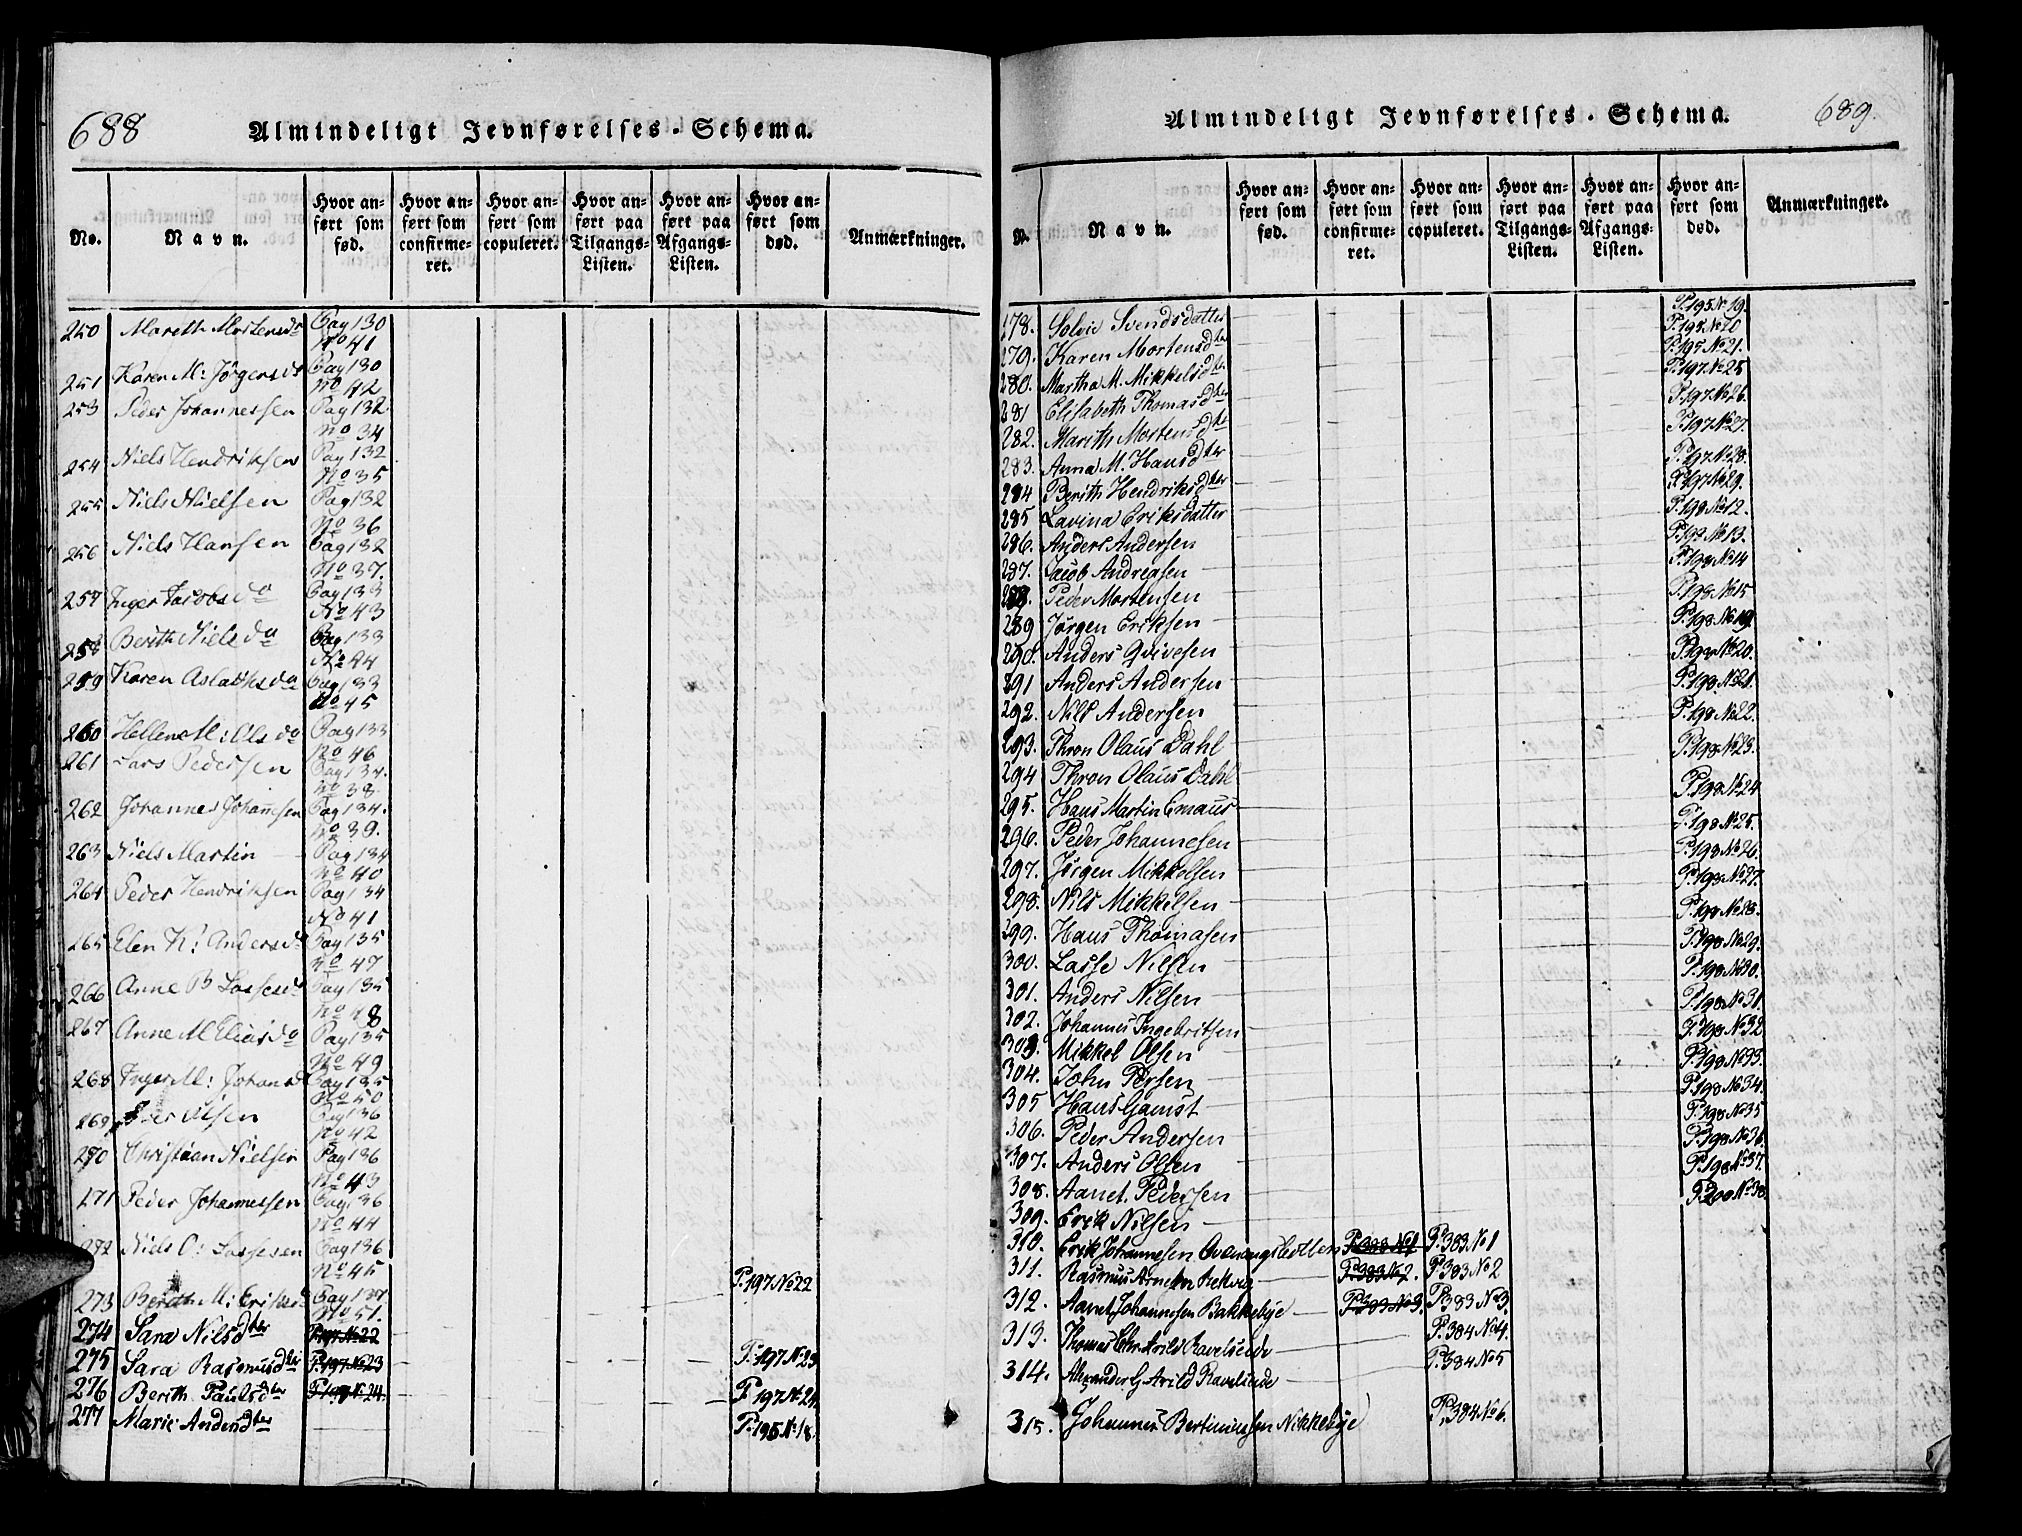 688
Almindeligt Jevnførelses-Schema.
No. Navn. Hvor anført som fød. Hvor anført som confirmeret. Hvor anført som copuleret. Hvor anført paa Tilgangs-Listen. Hvor anført paa Afgangs-Listen. Hvor anført som død. Anmærkninger.
250 Mareth Mortensdr Pag 130 No 41
251 Karen M: Jörgensdr Pag 130 No 42
253 Peder Johannessen Pag 132 No 34
254 Niels Hendriksen Pag 132 No 35
255 Niels Nielsen Pag 132 No 36
256 Niels Hansen Pag 132 No 37.
257 Inger Jacobsda Pag 133 No 43
258 Berith Nielsda Pag 133 No 44
259 Karen Aslakksda Pag 133 No 45
260 Hellene M: Olsda Pag 133 No 46
261 Lars Pedersen Pag 134. No 38
262 Johannes Johannesen Pag 134. No 39.
263 Niels Martin Pag 134 No 40
264 Peder Hendriksen Pag 134 No 41
265 Elen K: Andersdr Pag 135 No 47
266 Anne B Lassesdr Pag 135 No 48
267 Anne M Eliasda Pag 135 No 49
268 Inger M: Johansd Pag 135 No 50
269 Olsen Pag 136 No 42
270 Christian Nielsen Pag 136 No 43
271 Peder Johannessen Pag 136 No 44
272 Niels O: Lassesen Pag 136 No 45
273 Berith M: Eriksd Pag 137 No 51.
274 Sara Nilsdter P. 197 No 22 P. 197 No 22
275 Sara Rasmusdter P. 197 No 23 P. 197 No 23
276 Berith Paulsdter P. 197 No 24. P. 197 No 24
277 Marie Andersdter P. 195 No 18.
689.
Almindeligt Jevnførelses-Schema.
N. Navn. Hvor anført som fød. Hvor anført som confirmeret. Hvor anført som copuleret. Hvor anført paa Tilgangs-Listen. Hvor anført paa Afgangs-Listen. Hvor anført som død. Anmærkninger.
178. Solvie Svendsdatter P. 195 No 19.
279. Karen Mortensdter P. 195 No 20
280. Martha M. Mikkelsdtr P. 195 No 21.
281 Elisabeth Thomasdter P. 197 No 25
282. Marith Mortensdtr P. 197 No 26.
283. Anna M. Hansdter P. 197 No 27.
284 Berith Hendriksdter P. 197 No 28.
285 Lavina Eriksdatter P. 197 No 29.
286. Anders Andersen P. 198 No 12.
287. Jacob Andreasen P. 198 No 13.
288. Peder Mortensen P. 198 No 14
289 Jørgen Eriksen P. 198 No 15
290. Anders Qvivesen P. 198 No 19.
291 Anders Andersen P. 198 No 20.
292. Nils Andersen P. 198 No 21.
293. Thron Olaus Dahl P. 198 No 22.
294 Thron Olaus Dahl P. 198 No 23.
295. Hans Martin Emaus P. 198 No 24
296. Peder Johannesen P. 198 No 25.
297. Jørgen Mikkelsen P. 198 No 26.
298. Nils Mikkelsen P. 198 No 27.
299. Hans Thomasen P. 198 No 28.
300. Lasse Nilsen P. 198 No 29.
301. Anders Nilsen P. 198 No 30.
302. Johannes Ingebritsen P. 198 No 31
303. Mikkel Olsen P. 198 No 32
304. John Persen P. 198 No 33.
305 Hans Gamst P. 198 No 34.
306. Peder Andersen P. 198 No 35
307. Anders Olsen P. 198 No 36.
308. Aanet Pedersen P. 198 No 37.
309. Erik Nilsen P. 200 No 38.
310. Erik Johannesen P. 383 No 1 P. 383 No 1
311. Rasmus P. 383 No 2. P. 383 No 2
312. Aanet Johannesen Bakkebye P. 383 No 3. P. 383 No 3.
313. Thomas Chr. Arild Ravelseide P. 384 No 4.
314. Alexander G Arild Ravelseide P. 384 No 5
315. Johannes Bertinussen Nikkebye P. 384 No 6.